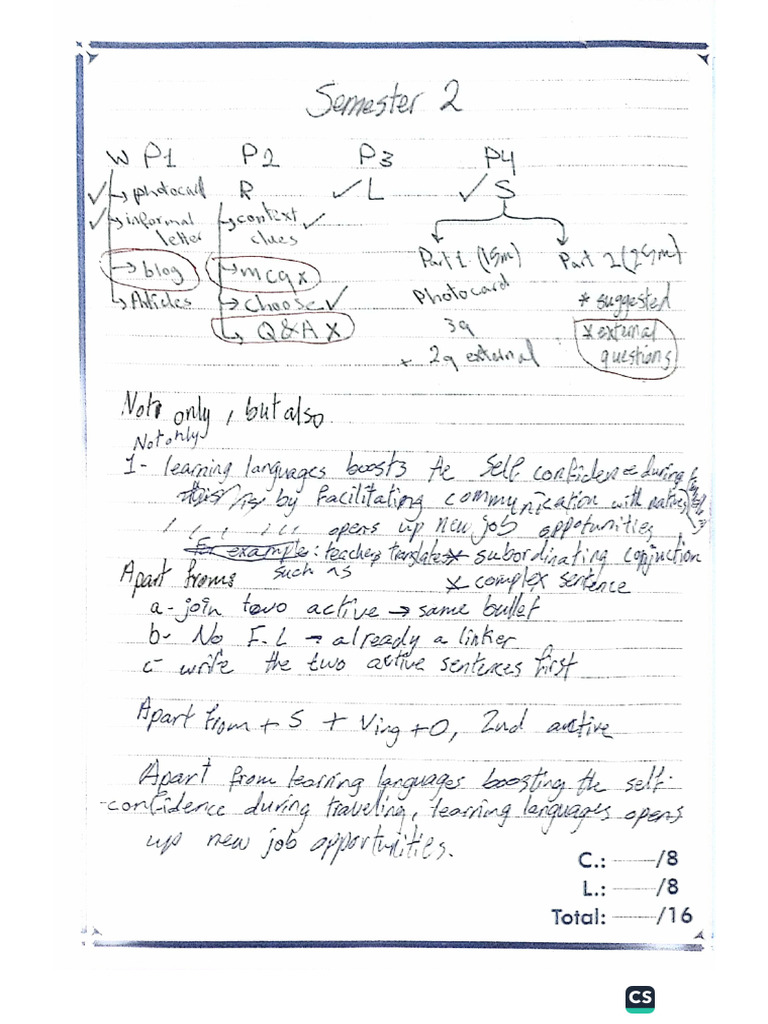 Semester 2
W P1 P2 P3 P4
✓ → photocard R ✓ L ✓ S
✓ → informal letter → context clues ✓ Part 1 (15m) Part 2 (25m)
→ blog → mcq x Photocard * suggested
→ Articles → choose ✓ 3q * external questions
→ Q&A X + 2q external
Not only, but also
Not only
1- learning languages boosts the self confidence during
by facilitating communication with natives
, , , , , , opens up new job opportunities
For example: teachers, translates * subordinating conjunction
Apart from: such as * complex sentence
a- join two active → same bullet
b- No F.L → already a linker
c- write the two active sentences first
Apart from + S + Ving + O, 2nd active
Apart from learning languages boosting the self-
-confidence during traveling, learning languages opens
up new job opportunities.
C.: /8
L.: /8
Total: /16
CS